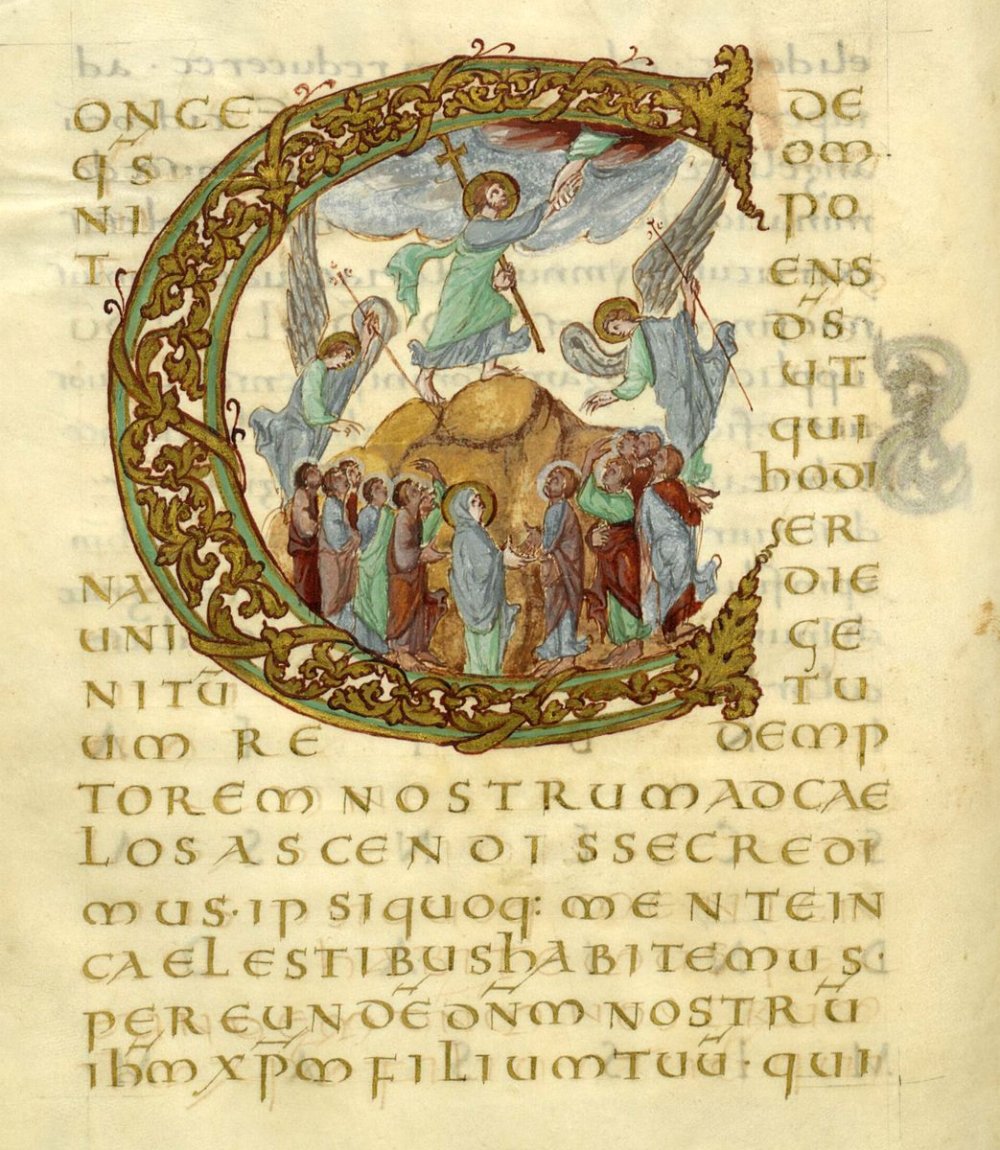 CONCE DE
q̄s om
NI PO
T ENS
D̄S
UT
qui
hODI
ER
NA DIE
UNI GE
NITŪ TU
UM RE DEMP
TOREM NOSTRUM AD CAE
LOS ASCENDISSE CREDI
MUS· IPSI quoq: MENTE IN
CAELESTIBUS hABITEMUS·
PER EUNDĒ DN̄M NOSTRŪ
ih̄m xp̄m FILIUM TUŪ· qui